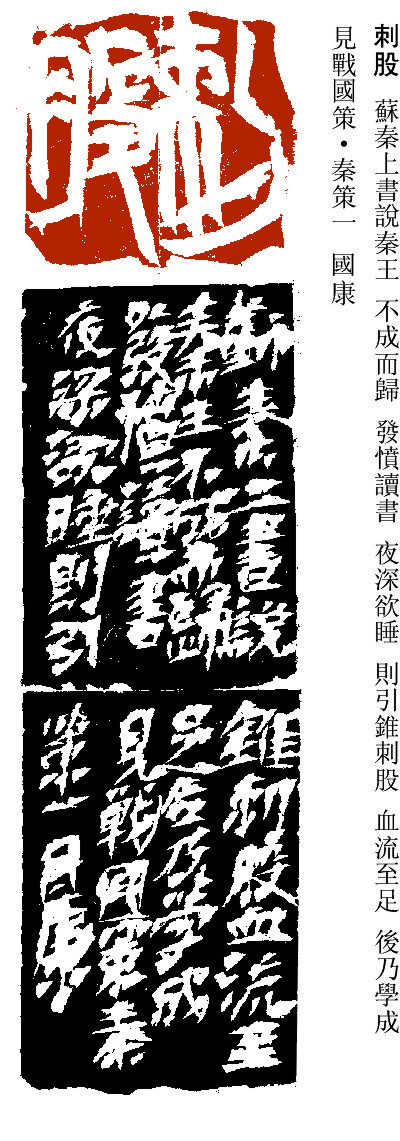 刺股 蘇秦上書說秦王 不成而歸 發憤讀書 夜深欲睡 則引錐刺股 血流至足 後乃學成
見戰國策・秦策一 國康
刺股
蘇秦上書說
秦王不成而歸
發憤讀書
夜深欲睡則引
錐刺股血流至
足后乃學成
見戰國策秦
策一 國康